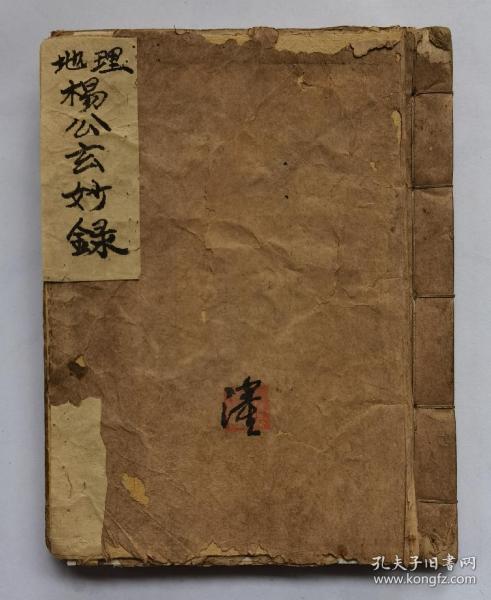 地理
楊公玄妙錄
孔夫子旧书网
www.kongfz.com